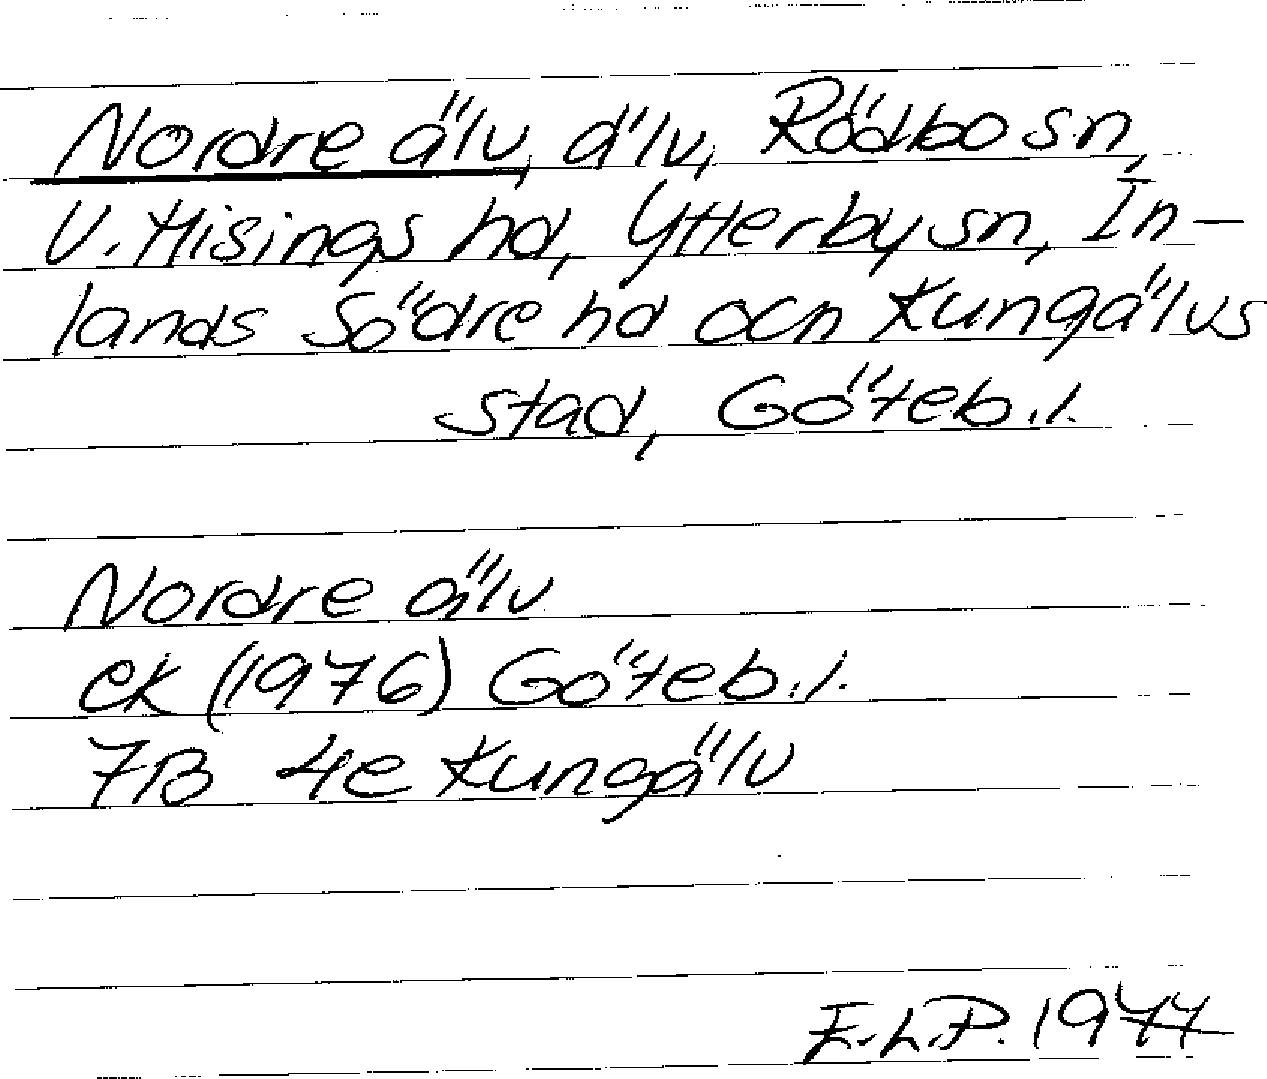 Nordre älv, älv, Rödbo sn,
V. Hisings hd, Ytterby sn, In-
lands Södre hd och Kungälvs
stad, Göteb. l.
Nordre älv
ek (1976) Göteb. l.
7B 4e Kungälv
E.L.P. 1977